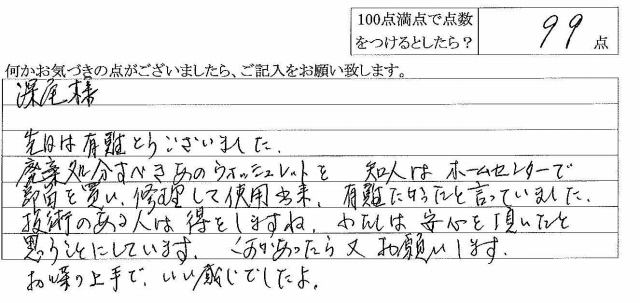 100点満点で点数
をつけるとしたら？
99点
何かお気づきの点がございましたら、ご記入をお願い致します。
深尾様
先日は有難とうございました.
廃棄処分すべきあのウォッシュレットを 知人は ホームセンターで
部品を買い、修理して使用出来、有難たかったと言っていました.
技術のある人は得をしますね. わたしは 安心を頂いたと
思うことにしています. 何かあったら又お願いします.
お喋り上手で、いい感じでしたよ.